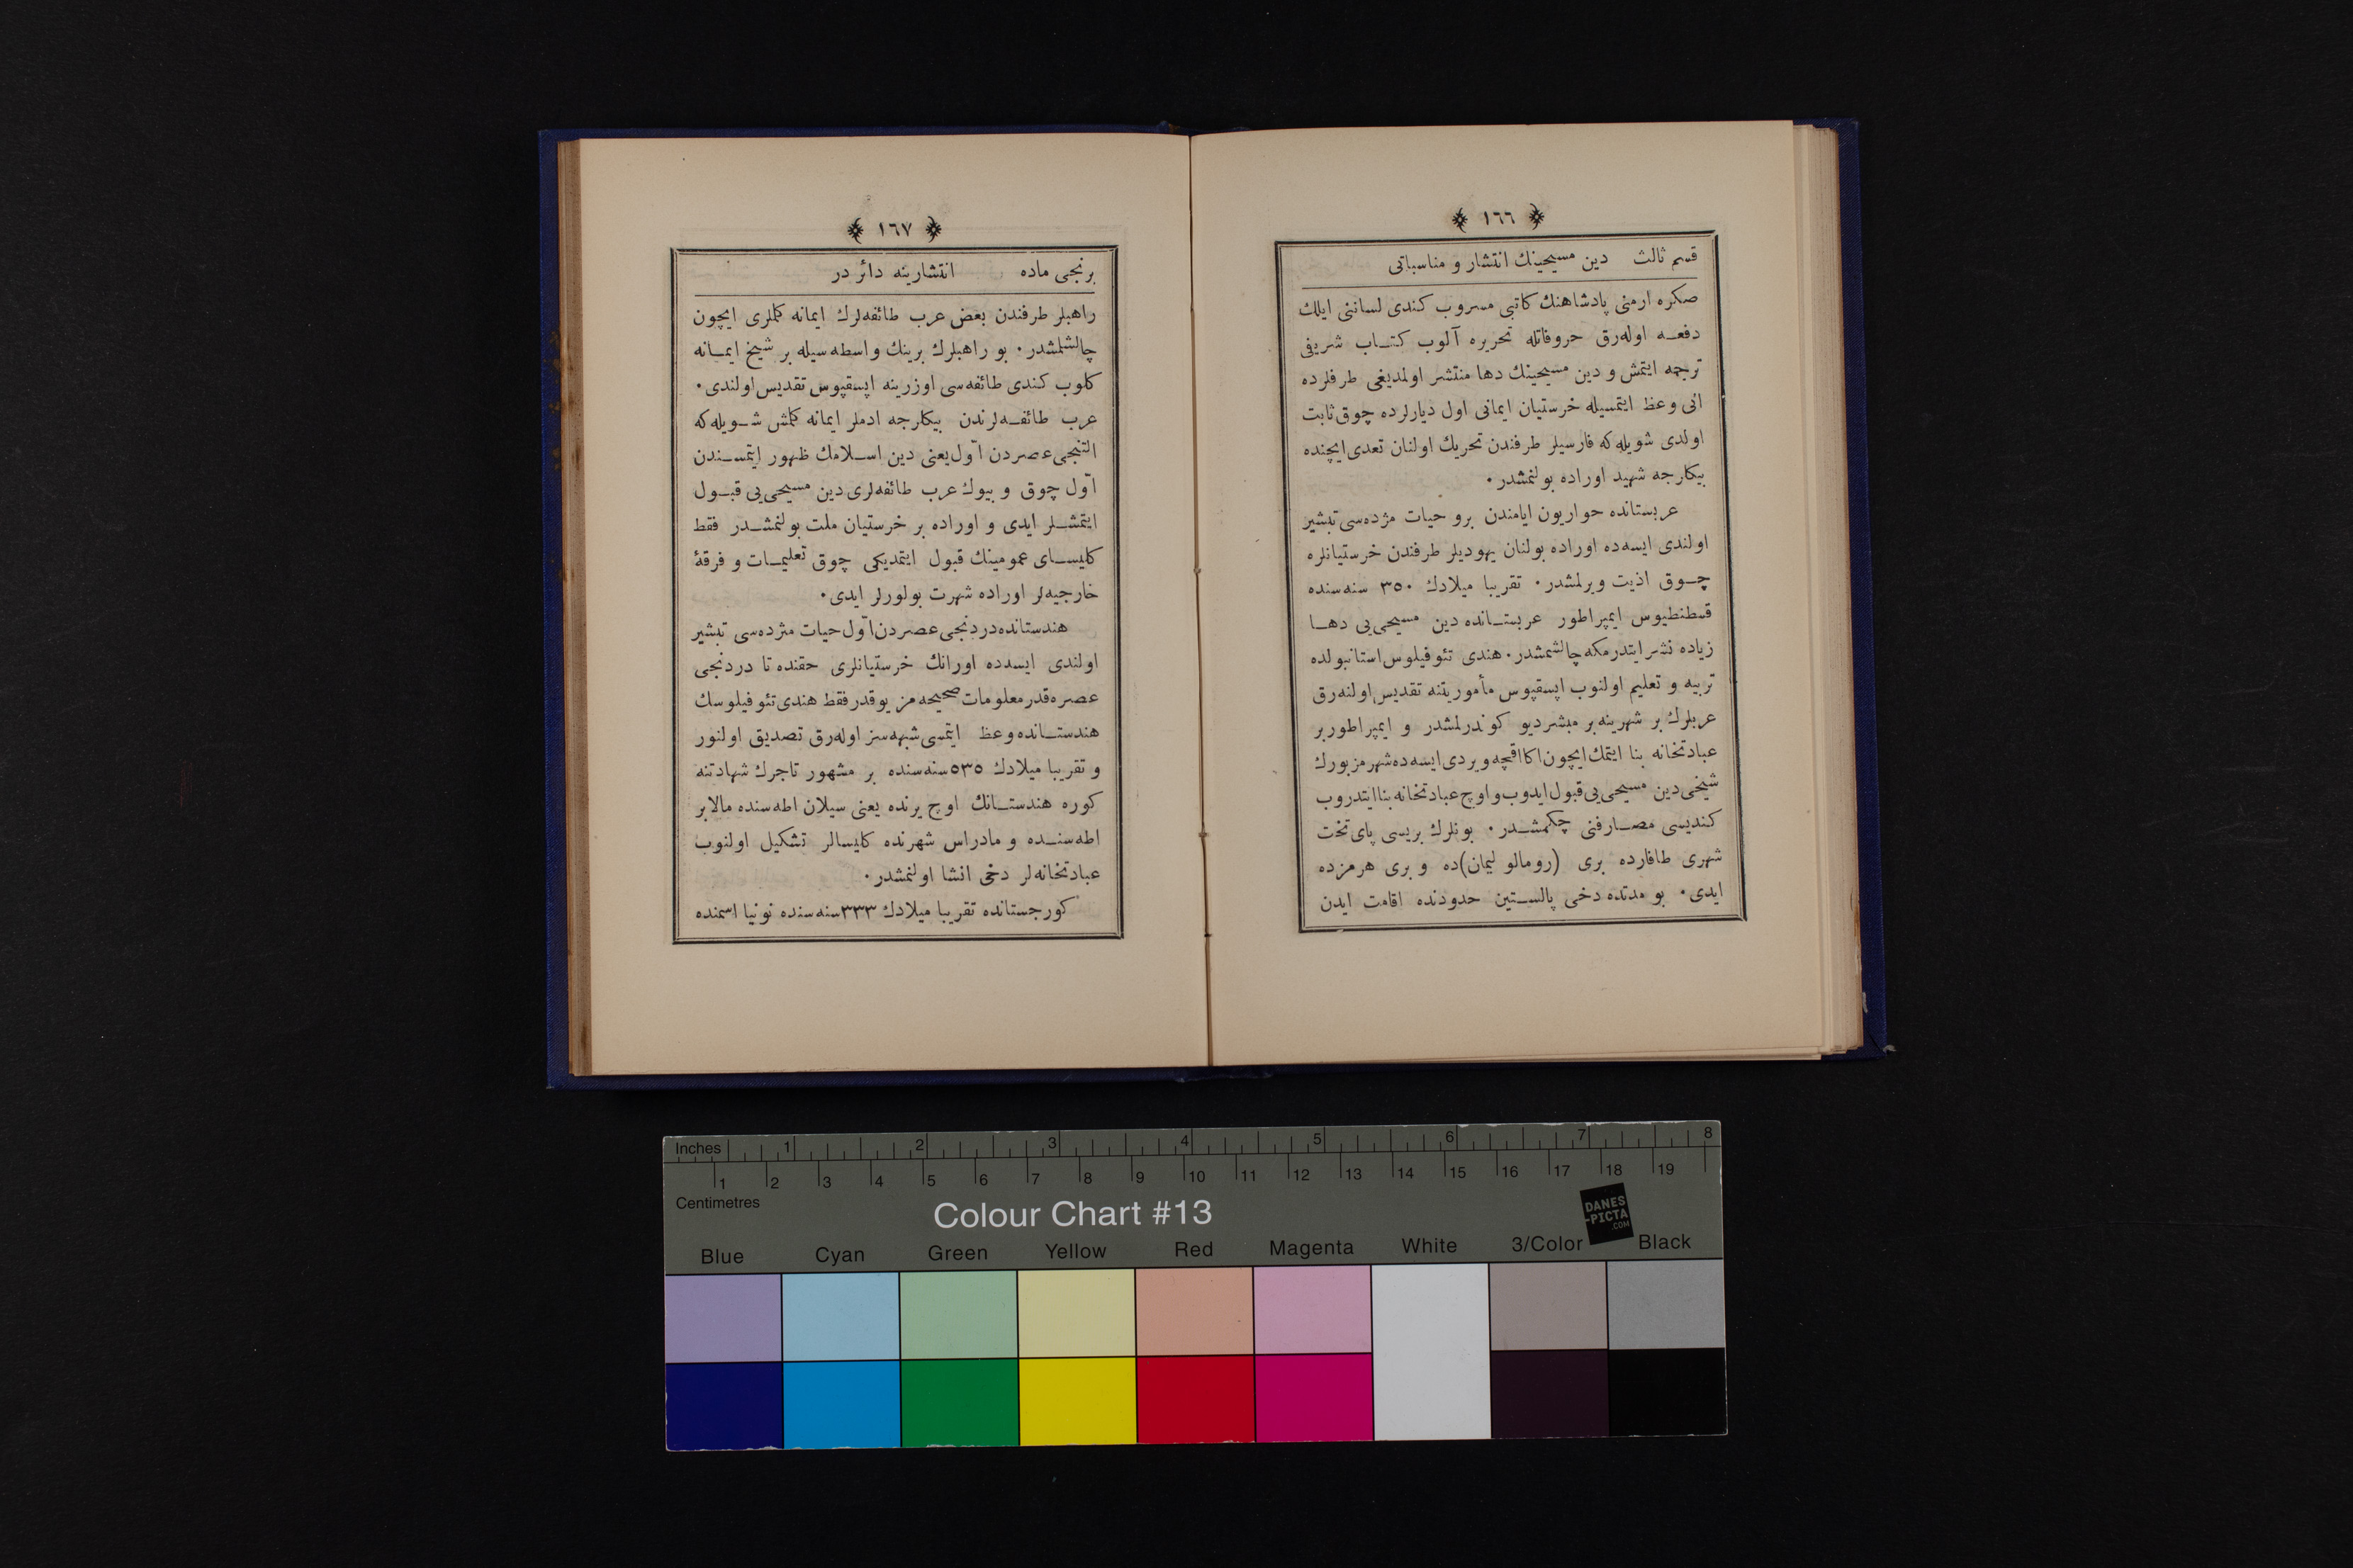 ١٦٦
قسم ثالث دين مسيحينك انتشار و مناسباتى
صكره ارمنى پادشاهنك كاتبى مسروب كندى لساننى ايلك
دفعه اولەرق حروفاتله تحريره آلوب كتاب شريفى
ترجمه ايتمش و دين مسيحينك دها منتشر اولمديغى طرفلرده
انى وعظ ايتمسيله خرستيان ايمانى اول ديارلرده چوق ثابت
اولدى شويله كه فارسيلر طرفندن تحريك اولنان تعدى ايچنده
بيكارجه شهيد اوراده بولنمشدر.
عربستانده حواريون ايامندن برو حيات مژدەسى تبشير
اولندى ايسەده اوراده بولنان يهوديلر طرفندن خرستيانلره
چوق اذيت ويرلمشدر. تقريبا ميلادك ٣٥٠ سنەسنده
قسطنطيوس ايمپراطور عربستانده دين مسيحى يى دها
زياده نشر ايتدرمكه چالشمشدر. هندى تئوفيلوس استانبولده
تربيه و تعليم اولنوب اپسقپوس مأموريتنه تقديس اولنەرق
عربلرك بر شهرينه بر مبشر ديو كوندرلمشدر و ايمپراطور بر
عبادتخانه بنا ايتمك ايچون اكا اقچه ويردى ايسەده شهر مزبورك
شيخى دين مسيحى يى قبول ايدوب و اوچ عبادتخانه بنا ايتدروب
كنديسى مصارفنى چكمشدر. بونلرك بريسى پاى تخت
شهرى طافارده برى (رومالو ليمان)ده و برى هرمزده
ايدى. بو مدتده دخى پالستين حدودنده اقامت ايدن
١٦٧
برنجى ماده انتشارينه دائر در
راهبلر طرفندن بعض عرب طائفەلرك ايمانه كلملرى ايچون
چالشلمشدر. بو راهبلرك برينك واسطەسيله بر شيخ ايمانه
كلوب كندى طائفەسى اوزرينه اپسقپوس تقديس اولندى.
عرب طائفەلرندن بيكارجه ادملر ايمانه كلمش شويله كه
التنجى عصردن اوّل يعنى دين اسلامك ظهور ايتمسندن
اوّل چوق و بيوك عرب طائفەلرى دين مسيحى يى قبول
ايتمشلر ايدى و اوراده بر خرستيان ملت بولنمشدر فقط
كليساى عمومينك قبول ايتمديكى چوق تعليمات و فرقۀ
خارجيەلر اوراده شهرت بولورلر ايدى.
هندستانده دردنجى عصردن اوّل حيات مژدەسى تبشير
اولندى ايسەده اورانك خرستيانلرى حقنده تا دردنجى
عصره قدر معلومات صحيحەمز يوقدر فقط هندى تئوفيلوسك
هندستانده وعظ ايتمسى شبهەسز اولەرق تصديق اولنور
و تقريبا ميلادك ٥٣٥ سنەسنده بر مشهور تاجرك شهادتنه
كوره هندستانك اوچ يرنده يعنى سيلان اطەسنده مالابر
اطەسنده و مادراس شهرنده كليسالر تشكيل اولنوب
عبادتخانەلر دخى انشا اولنمشدر.
كورجستانده تقريبا ميلادك ٣٣٣ سنەسنده نونيا اسمنده
Inches 1 2 3 4 5 6 7 8
1 2 3 4 5 6 7 8 9 10 11 12 13 14 15 16 17 18 19
Centimetres
Colour Chart #13
DANES
-PICTA
.COM
Blue Cyan Green Yellow Red Magenta White 3/Color Black